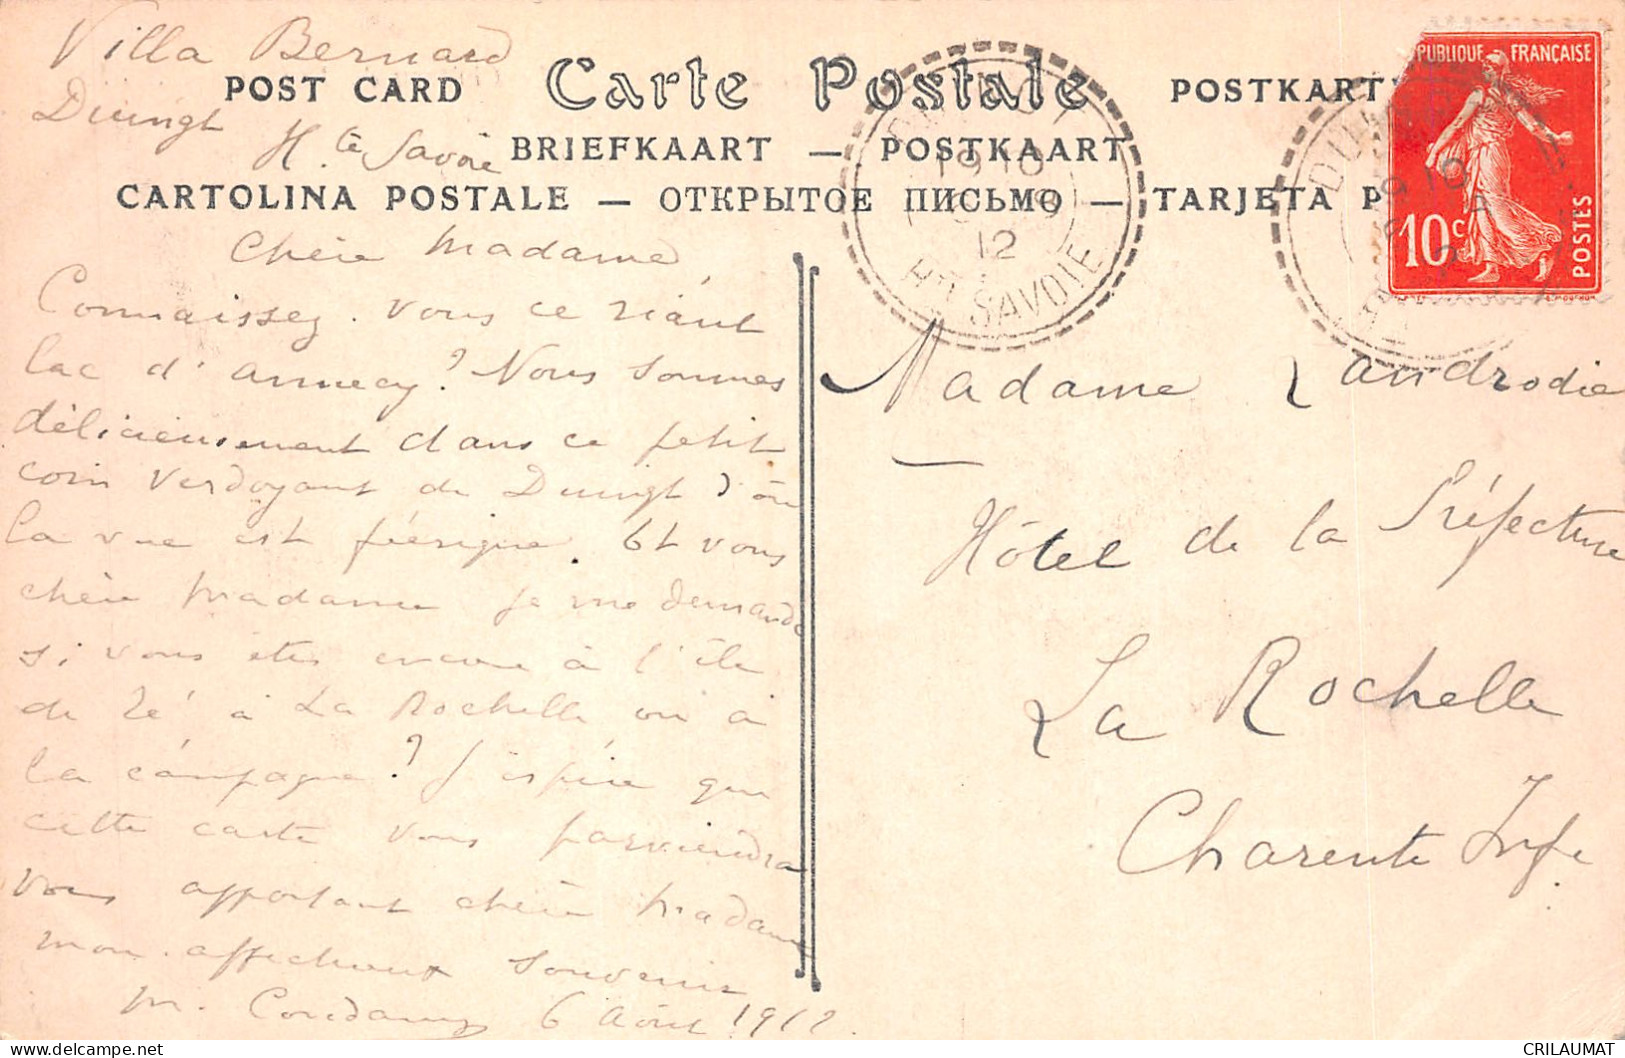 Villa Bernard
Duingt
Hte Savoie
POST CARD Carte Postale POSTKART
BRIEFKAART — POSTKAART
CARTOLINA POSTALE — ОТКРЫТОЕ ПИСЬМО — TARJETA P
Chère Madame,
Connaissez-vous ce riant
lac d'annecy? Nous sommes
délicieusement dans ce petit
coin verdoyant de Duingt d'où
la vue est féérique. Et vous
chère Madame je me demande
si vous êtes encore à l'île
de Ré à La Rochelle ou à
la campagne? J'espère que
cette carte vous parviendra
vous apportant chère Madame
mon affectueux souvenir
M. 6 Août 1912.
PUBLIQUE FRANÇAISE
10c
POSTES
DUINGT
12
Hte SAVOIE
Madame Landrodie
Hôtel de la Préfecture
La Rochelle
Charente Infe
CRILAUMAT